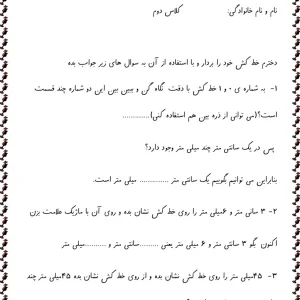 نام و نام خانوادگی: کلاس دوم
دخترم خط کش خود را بردار و با استفاده از آن به سوال های زیر جواب بده
۱- به شماره ی ۰ و ۱ خط کش با دقت نگاه کن و ببین بین این دو شماره چند قسمت
است؟(می توانی از ذره بین هم استفاده کنی)..............
پس در یک سانتی متر چند میلی متر وجود دارد؟
بنابراین می توانیم بگوییم یک سانتی متر .............. میلی متر است.
۲- ۳ سانتی متر و ۶میلی متر را روی خط کش نشان بده و روی آن با ماژیک علامت بزن
اکنون بگو ۳ سانتی متر و ۶ میلی متر یعنی .........سانتی متر و ..........میلی متر
۳- ۴۵میلی متر را روی خط کش نشان بده و از روی خط کش نشان بده ۴۵میلی متر چند